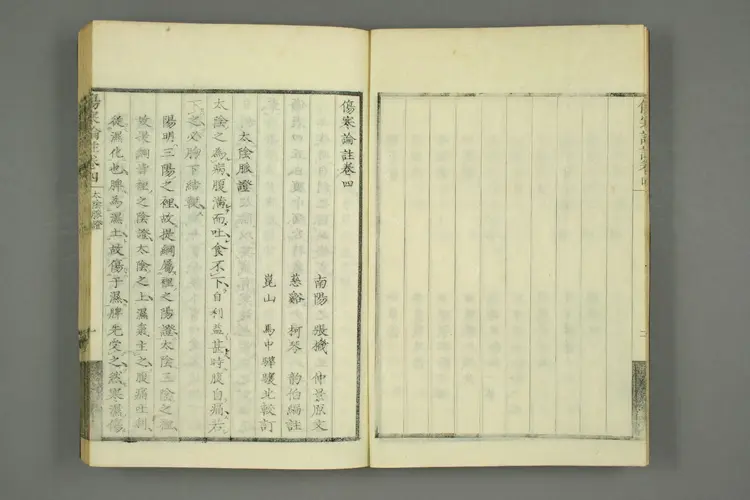 傷寒論註卷四
南陽 張機 仲景原文
慈谿 柯琴 韵伯編註
崑山 馬中驊驤北較訂
太陰脉證
太陰之為病腹滿而吐食不下自利益甚時腹自痛若
下之必胸下結鞕
陽明三陽之裡故提綱屬裡之陽證太陰三陰之裡
故提綱皆裡之陰證太陰之上濕氣主之腹痛吐利
從濕化也脾為濕土故傷于濕脾先受之然寒濕傷
傷寒論註卷四 太陰脉證 一